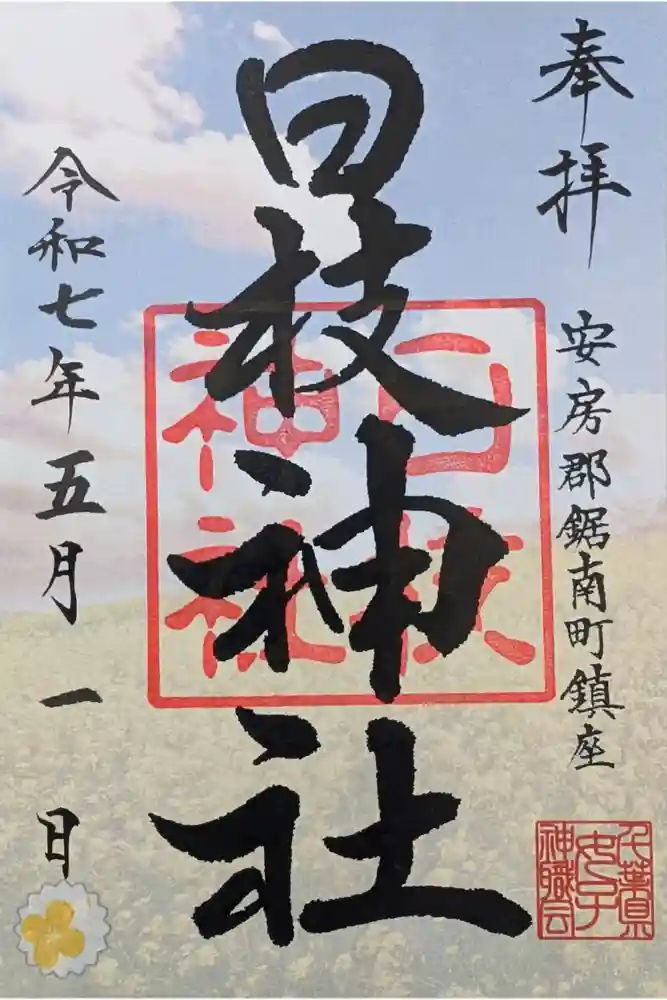 奉拝
安房郡鋸南町鎮座
日枝神社
令和七年五月一日
日枝
神社
千葉県
女子
神職会